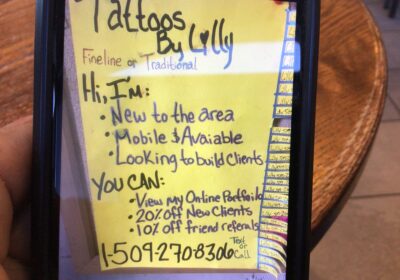 Tattoos
By Lilly
Fineline or Traditional
Hi, I'm:
• New to the area
• Mobile & Avaiable
• Looking to build Clients
YOU CAN:
• View My Online Portfoilo
• 20% off New Clients
• 10% off friend referals
1-509-270-8306 Text or Call